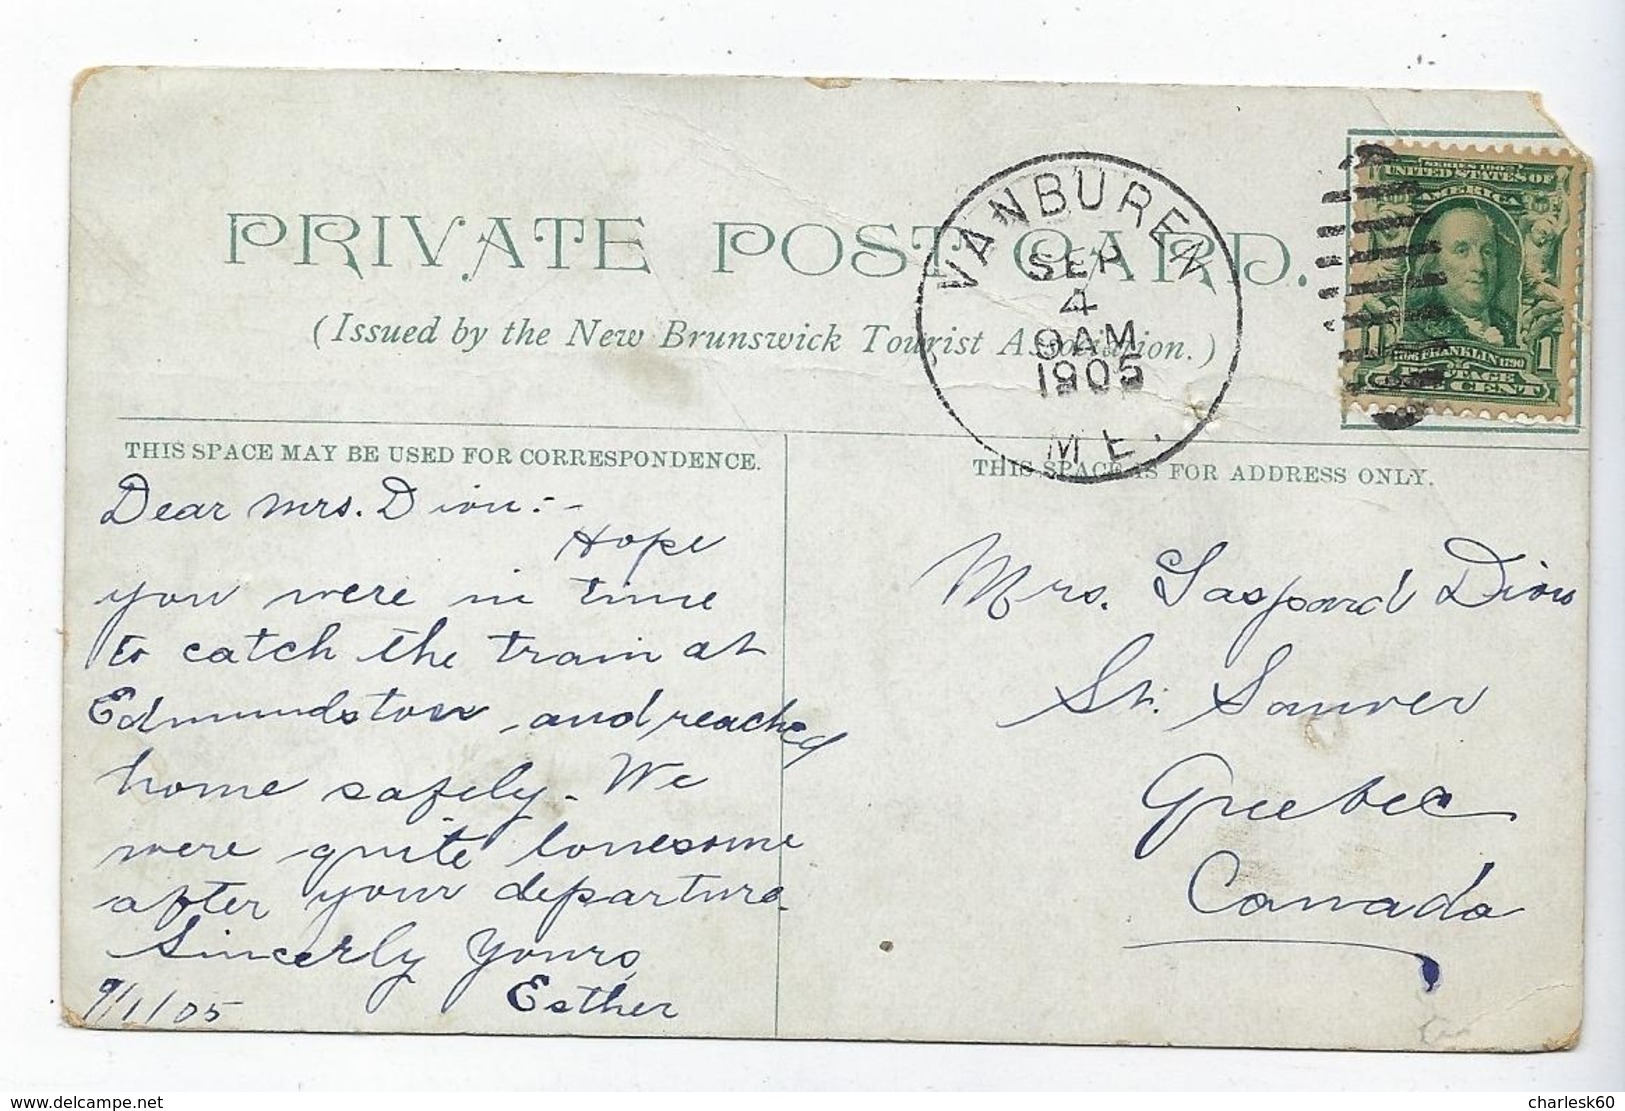 PRIVATE POST CARD.
(Issued by the New Brunswick Tourist Association.)
VANBUREN
SEP
4
9AM
1905
ME.
SERIES 1902
UNITED STATES OF
AMERICA
1706 FRANKLIN 1790
POSTAGE
1 ONE CENT 1
THIS SPACE MAY BE USED FOR CORRESPONDENCE.
Dear Mrs. Dion:-
Hope
you were in time
to catch the train at
Edmundston and reached
home safely. We
were quite lonesome
after your departure.
Sincerly Yours,
Esther
9/1/05
THIS SPACE IS FOR ADDRESS ONLY.
Mrs. Gaspard Dion
St. Sauver
Quebec
Canada
www.delcampe.net
charlesk60